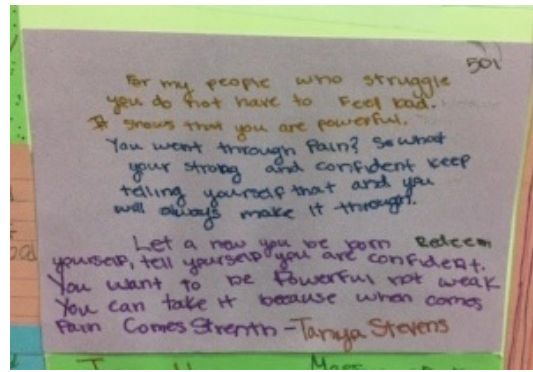 501
For my people who struggle
you do not have to Feel bad.
It shows that you are powerful.
You went through Pain? So what
your strong and confident keep
telling yourself that and you
will always make it through.
Let a new you be born Redeem
yourself, tell yourself you are confident.
You want to be Powerful not weak
You can take it because when comes
Pain Comes Strenth - Tanya Stevens